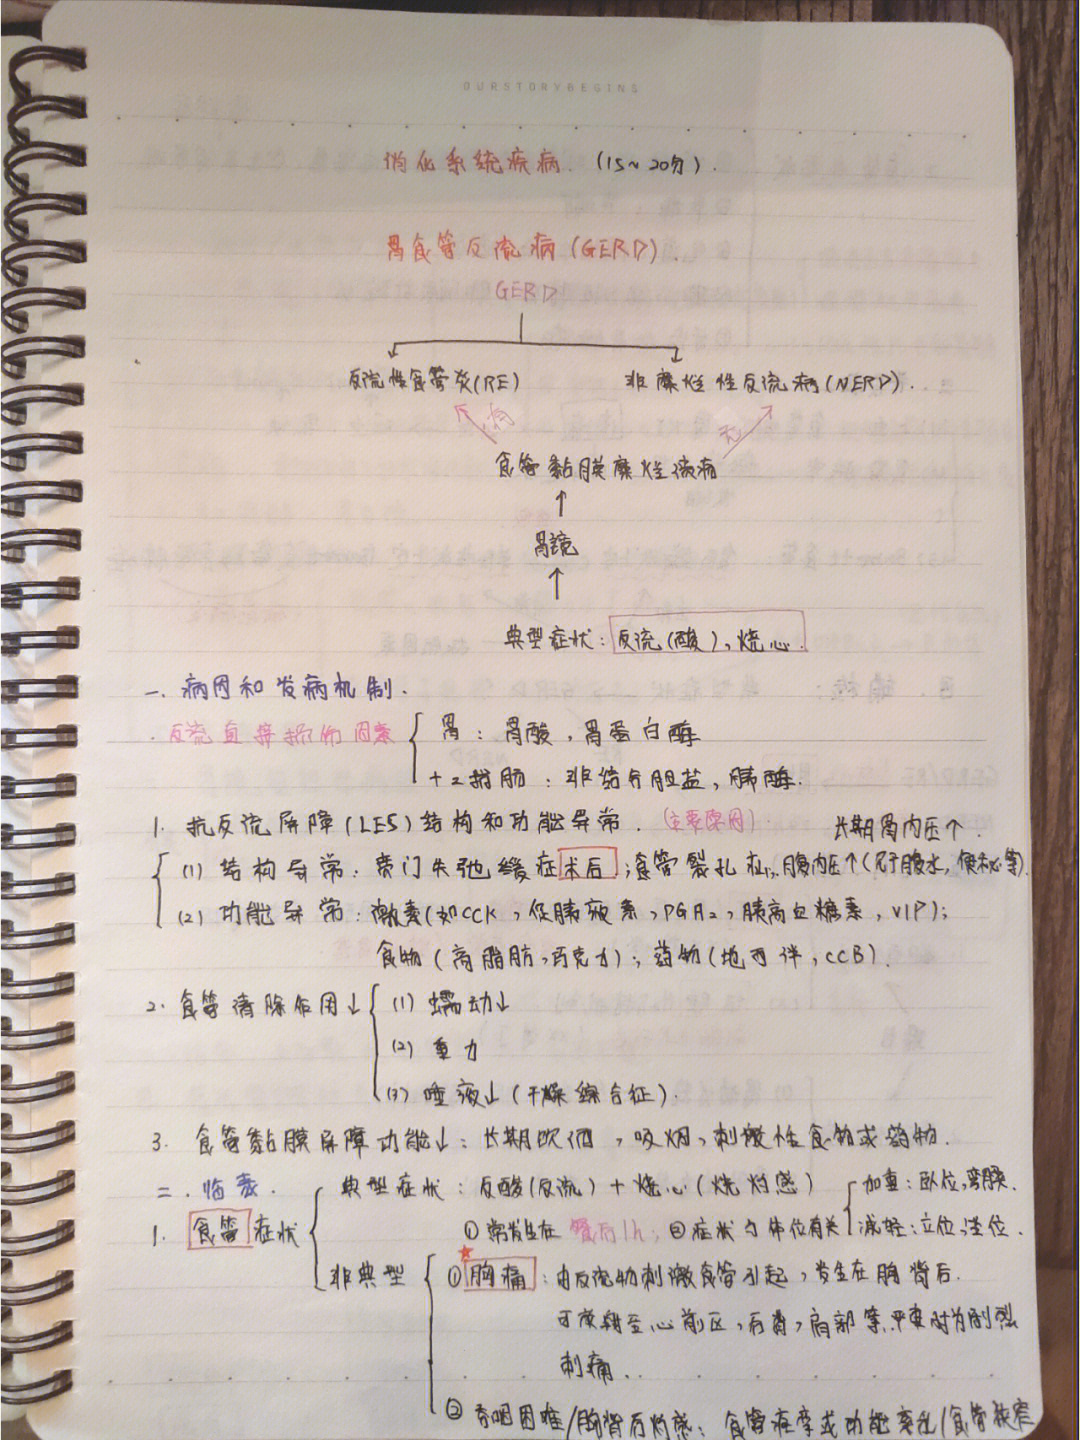 OURSTORYBEGINS
消化系统疾病.(15~20分).
胃食管反流病(GERD).
GERD
反流性食管炎(RE) 非糜烂性反流病(NERD).
有 无
食管黏膜糜烂溃疡
↑
胃镜
↑
典型症状:反流(酸),烧心.
一.病因和发病机制.
反流直接损伤因素 胃:胃酸,胃蛋白酶
十二指肠:非结合胆盐,胰酶.
1.抗反流屏障(LES)结构和功能异常.(主要原因) 长期胃内压↑.
(1)结构异常:贲门失弛缓症术后;食管裂孔疝;腹内压↑(孕,腹水,便秘等)
(2)功能异常:激素(如CCK,促胰液素,PGA2,胰高血糖素,VIP);
食物(高脂肪,巧克力);药物(地西泮,CCB).
2.食管清除作用↓ (1)蠕动↓
(2)重力
(3)唾液↓(干燥综合征).
3.食管黏膜屏障功能↓:长期饮酒,吸烟,刺激性食物或药物.
二.临表. 典型症状:反酸(反流)+烧心(烧灼感) 加重:卧位,弯腰.
1.食管症状 ①常发生在餐后1h;②症状与体位有关 减轻:立位,坐位.
非典型 ①胸痛:由反流物刺激食管引起,发生在胸背后.
可放射至心前区,后背,肩部等,严重时为剧烈
刺痛..
②吞咽困难/胸骨后灼感:食管痉挛或功能紊乱/食管狭窄